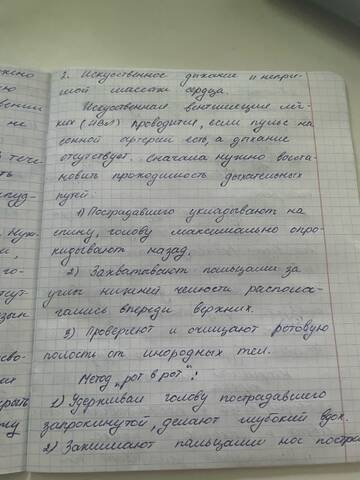 2. Искусственное дыхание и непря-
мой массаж сердца.
Искусственная вентиляция лёг-
ких (ИВЛ) проводится, если пульс на
сонной артерии есть, а дыхание
отсутствует. Сначала нужно восста-
новить проходимость дыхательных
путей:
1) Пострадавшего укладывают на
спину, голову максимально опро-
кидывают назад.
2) Захватывают пальцами за
углы нижней челюсти располо-
гались впереди верхних.
3) Проверяют и очищают ротовую
полость от инородных тел.
Метод "рот в рот":
1) Удерживая голову пострадавшего
запрокинутой, делают глубокий вдох.
2) Зажимают пальцами нос